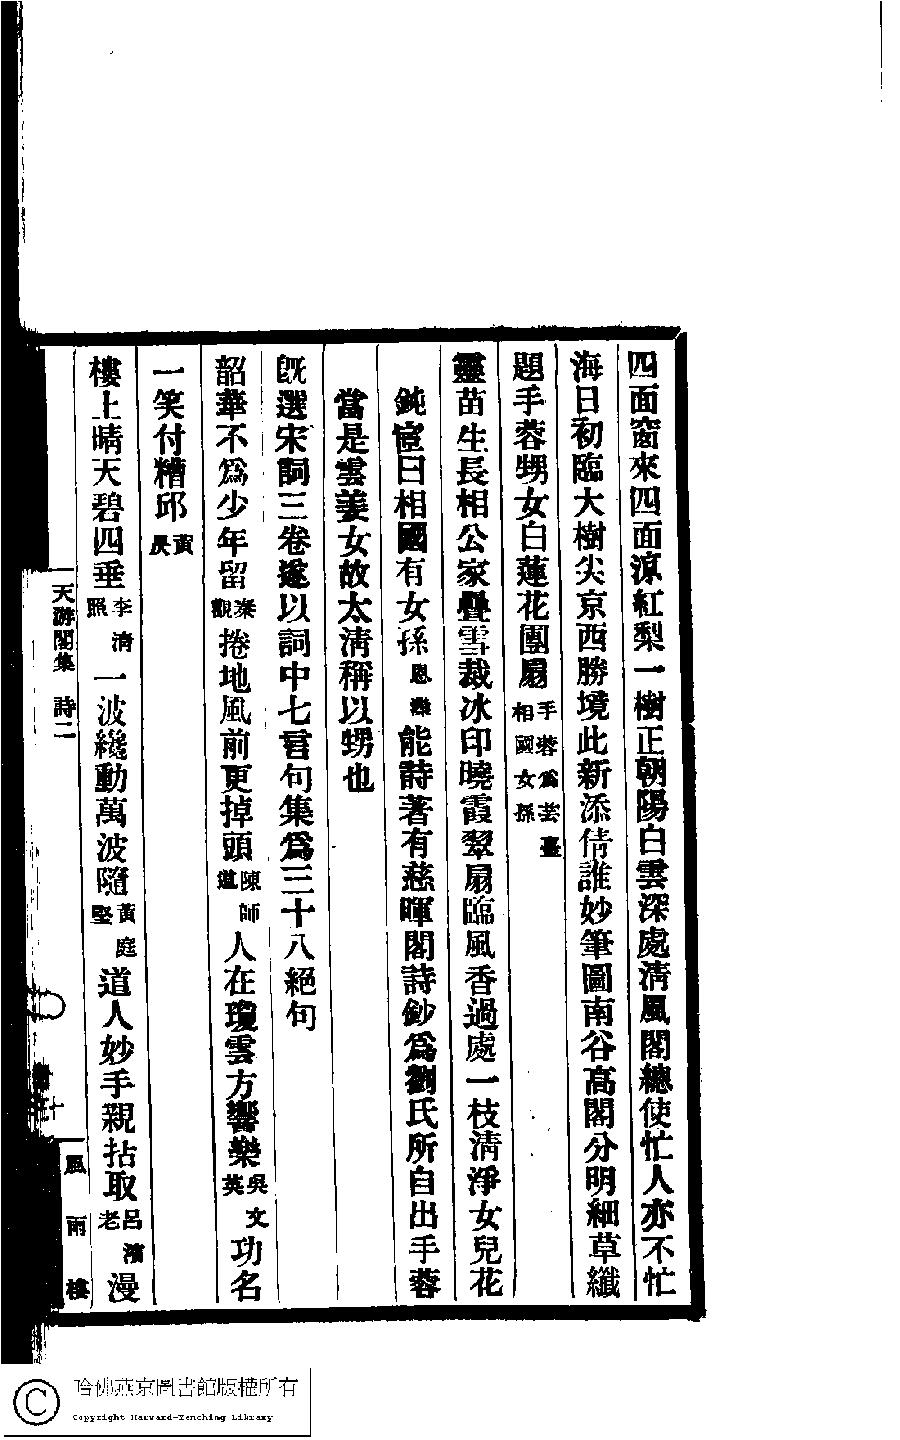 四面窗來四面涼紅梨一樹正朝陽白雲深處淸風閣總使忙人亦不忙
海日初臨大樹尖京西勝境此新添倩誰妙筆圖南谷高閣分明細草纖
題手蓉甥女白蓮花團扇手蓉爲芸臺相國女孫
靈苗生長相公家疊雪裁冰印曉霞翠扇臨風香過處一枝淸淨女兒花
鈍宧曰相國有女孫恩灤能詩著有慈暉閣詩鈔爲劉氏所自出手蓉
當是雲姜女故太淸稱以甥也
旣選宋詞三卷遂以詞中七言句集爲三十八絕句
韶華不爲少年留秦觀捲地風前更掉頭陳師道人在瓊雲方響樂吳文英功名
一笑付糟邱黃昃
樓上晴天碧四垂李淸照一波纔動萬波隨黃庭堅道人妙手親拈取呂濱老漫
天游閣集 詩二
十
風雨樓
哈佛燕京圖書館版權所有
Copyright Harvard-Yenching Library